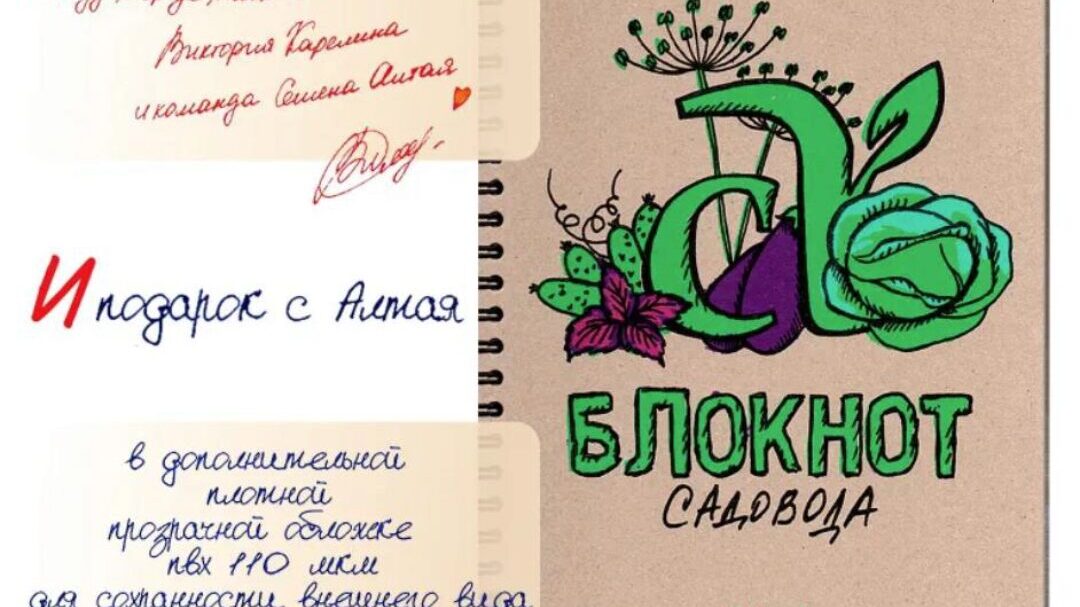 Виктория Карелина
и команда Семена Алтая
И подарок с Алтая
в дополнительной
плотной
прозрачной обложке
пвх 110 мкм
для сохранности внешнего вида
са
БЛОКНОТ
САДОВОДА